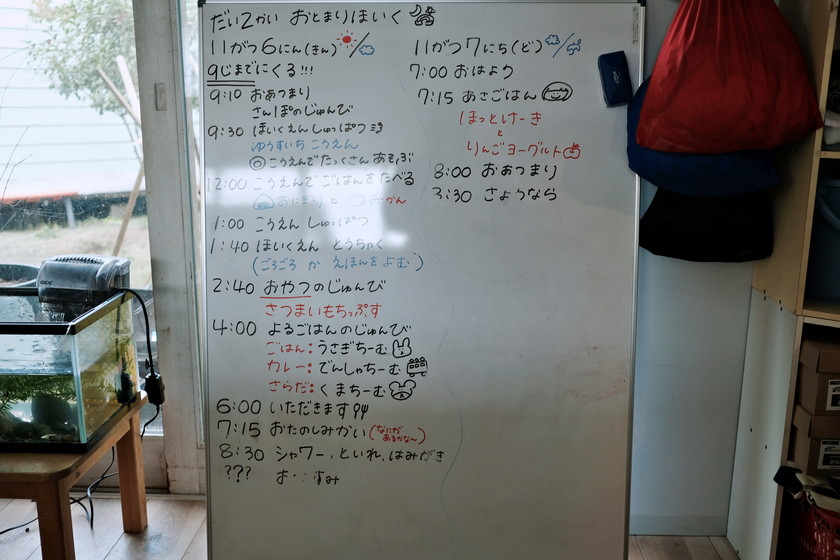 だい2かい おとまりほいく
11がつ6にん(きん)
9じまでにくる!!!
9:10 おあつまり
さんぽのじゅんび
9:30 ほいくえん しゅっぱつ
ゆうすいち こうえん
◎こうえんでたっくさん あそぶ
12:00 こうえんで ごはんを たべる
おにぎり と おかん
1:00 こうえん しゅっぱつ
1:40 ほいくえん とうちゃく
(ごろごろ か えほんを よむ)
2:40 おやつのじゅんび
さつまいもちっぷす
4:00 よるごはんのじゅんび
ごはん:うさぎちーむ
カレー:でんしゃちーむ
さらだ:くまちーむ
6:00 いただきます
7:15 おたのしみかい(なにが あるかな〜)
8:30 シャワー、といれ、はみがき
???
11がつ7にち(ど)
7:00 おはよう
7:15 あさごはん
ほっとけーき
と
りんごヨーグルト
8:00 おあつまり
8:30 さようなら